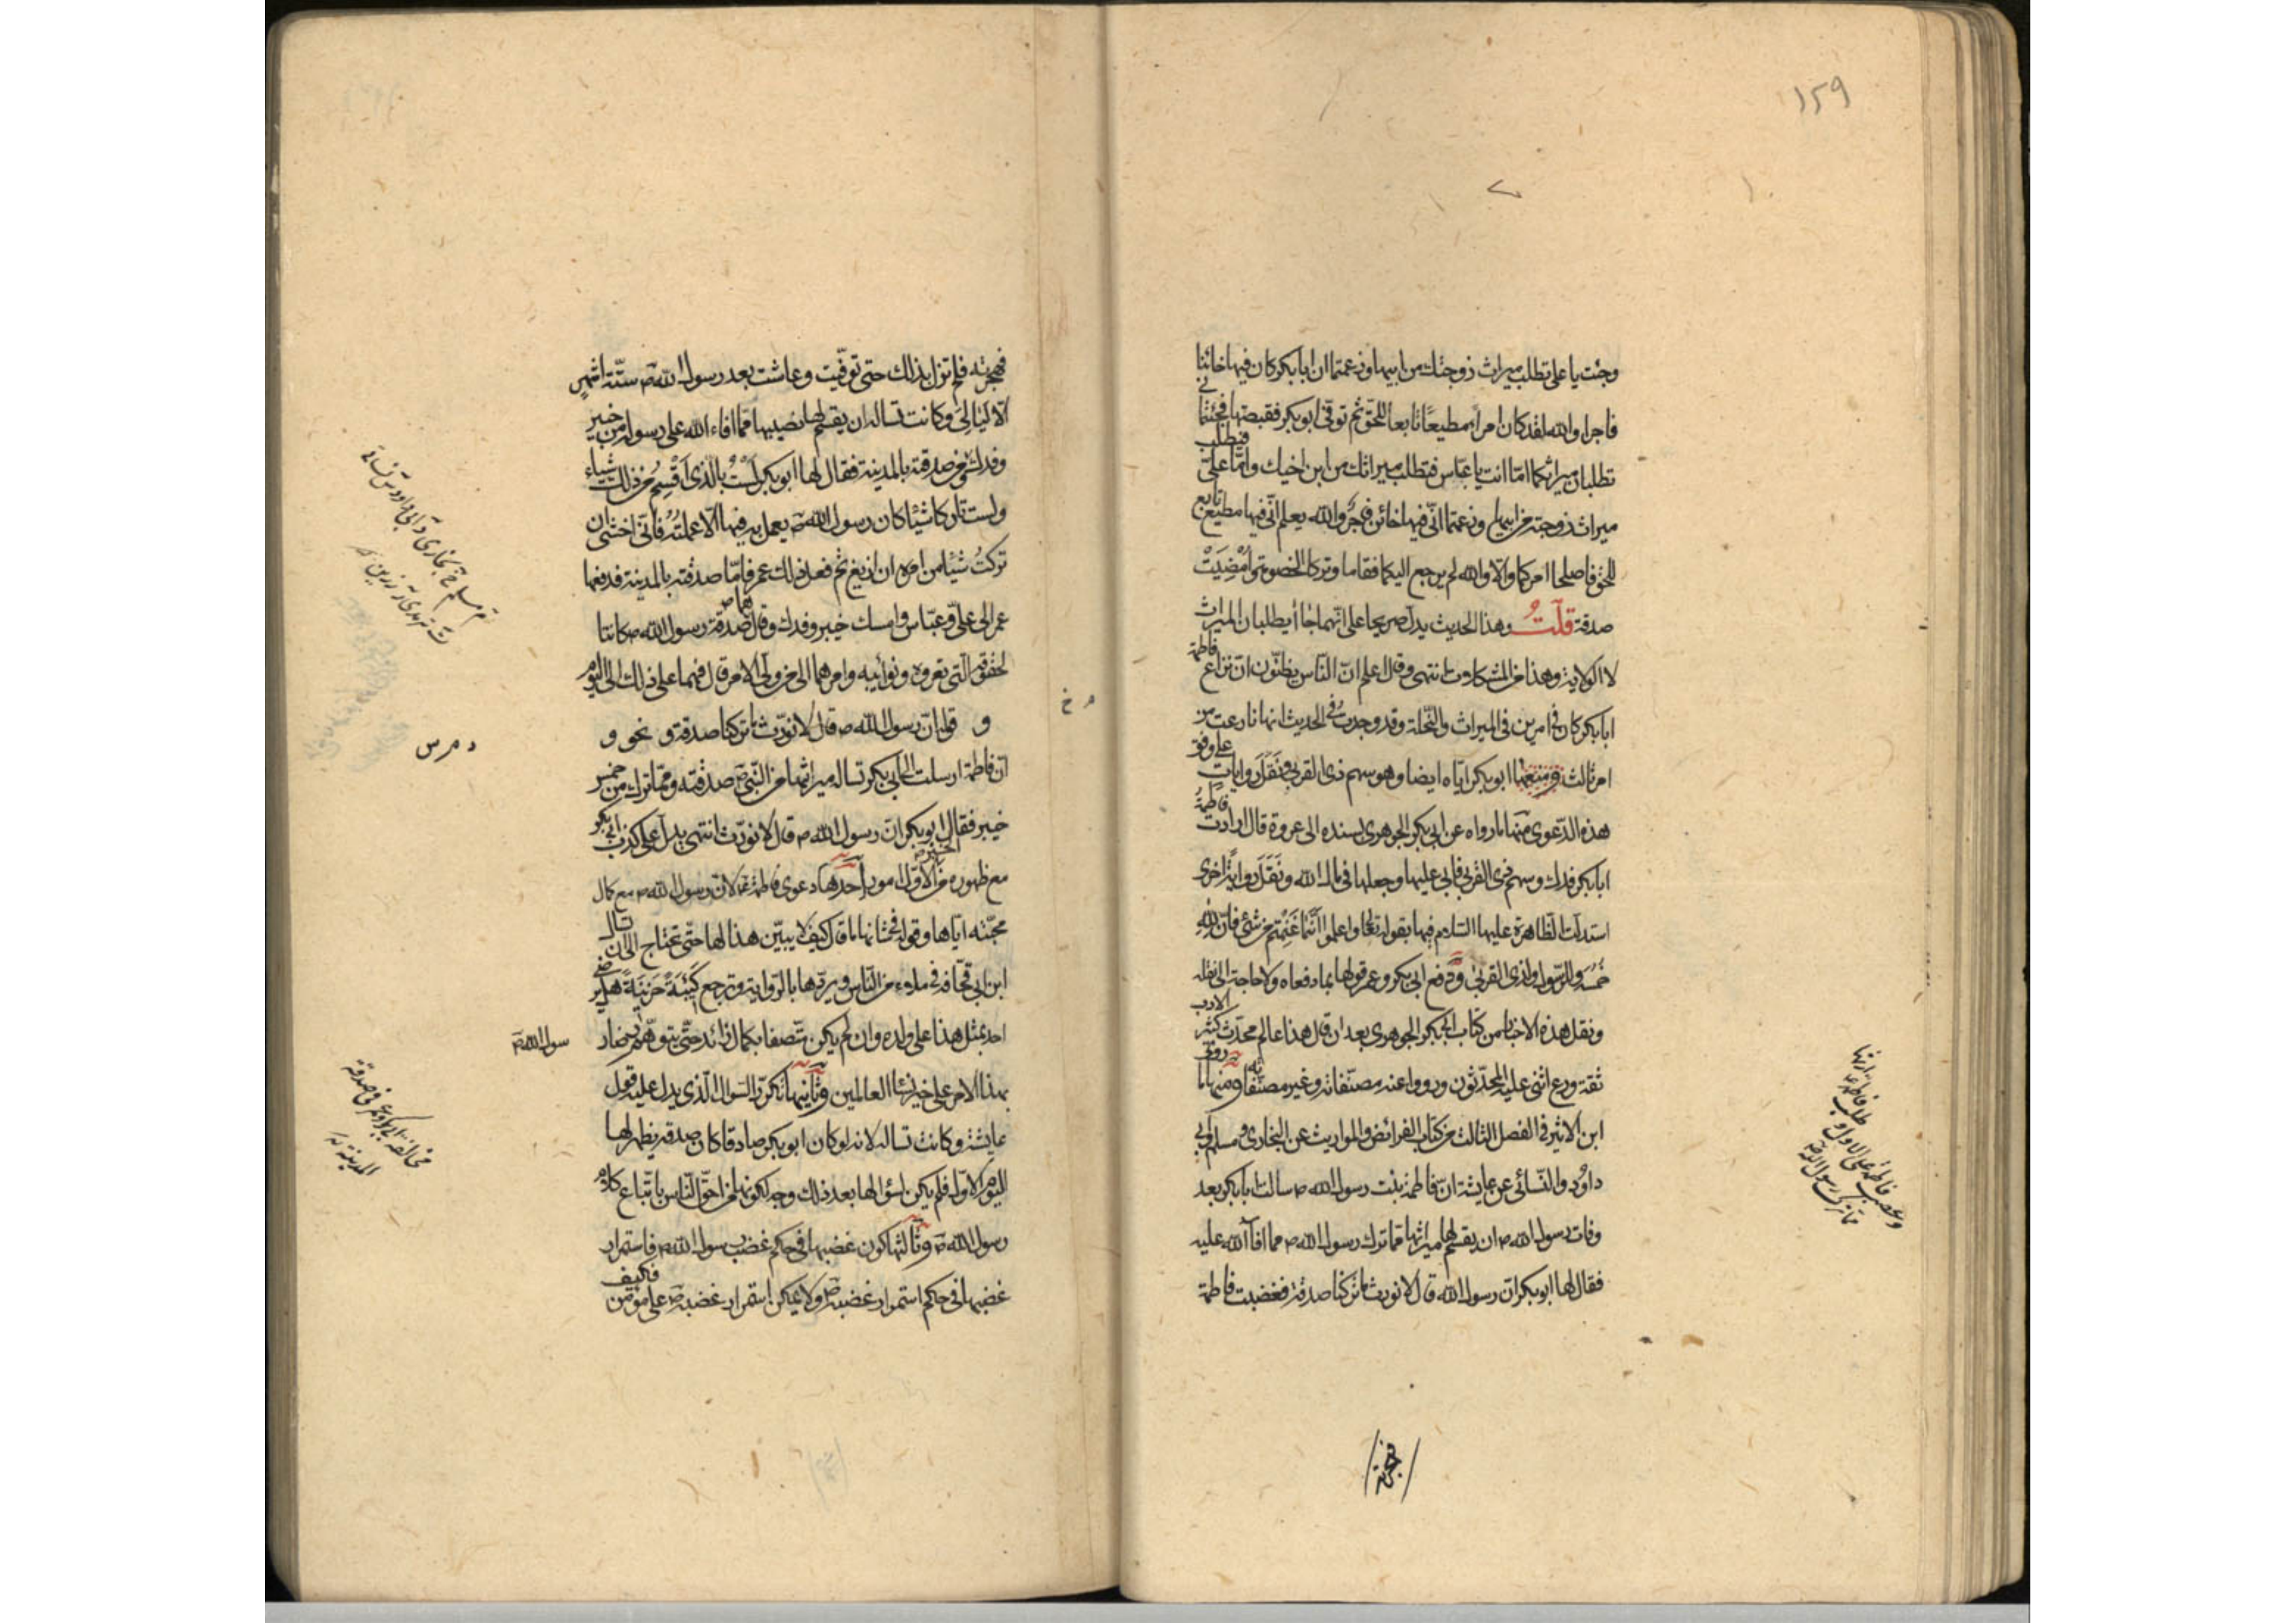 ١٥٩
وجئت يا على تطلب ميراث زوجتك من ابيها وزعمتما ان ابا بكر كان فيها خائنا
فاجرا والله لقد كان امرأ مطيعًا تابعا للحق ثم توفى ابو بكر فقبضتها فجئتمانى
تطلبان ميراثكما امّا انت يا عبّاس فتطلب ميراثك من ابن اخيك وامّا علىّ فيطلب
ميراث زوجته من ابيها وزعمتما انّى فيها خائن فاجر والله يعلم انّى فيها مطيع تابع
للحق فاصلحا امركما والا والله لم يرجع اليكما فقاما وتركا الخصومة وامضيت
صدقة قلت وهذا الحديث يدل صريحا على انّهما جاءا يطلبان الميراث
لا الولاية وهذا من المشكلات انتهى وقال اعلم انّ النّاس يظنّون انّ نزاع فاطمة
ابا بكر كان فى امرين فى الميراث والنّحلة وقد وجدت فى الحديث انها نازعت من
امر ثالث ومنعها ابو بكر ايّاه ايضا وهو سهم ذى القربى ونقل روايات على وفق
هذه الدّعوى منها ما رواه عن ابى بكر الجوهرى بسنده الى عروة قال ارادت فاطمة
ابا بكر فدك وسهم ذوى القربى فابى عليها وجعلها فى مال الله ونقل رواية اخرى
استدلت الطاهرة عليها السّلام فيها بقوله تعالى واعلموا انّما غنمتم من شئ فانّ لله
خمسه وللرّسول ولذى القربى ودفع ابى بكر وعمر قولها بما دفعاه ولا حاجة الى نقله
ونقل هذه الاخبار من كتاب ابى بكر الجوهرى بعد ان قال هذا عالم محدّث كثير الادب
ثقة ورع اثنى عليه المحدّثون ورووا عنه مصنّفاته وغير مصنّفاته ومنها ما روى
ابن الاثير فى الفصل الثالث من كتاب الفرائض والمواريث عن البخارى ومسلم وابى
داود والنّسائى عن عايشة ان فاطمة بنت رسول الله ص سالت ابا بكر بعد
وفات رسول الله ص ان يقسم لها ميراثها مما ترك رسول الله ص مما افاء الله عليه
فقال لها ابو بكر انّ رسول الله قال لا نورث ما تركنا صدقة فغضبت فاطمة
فهجرته
فهجرته فلم تزل بذلك حتى توفّيت وعاشت بعد رسول الله ص ستّة اشهر
الّا ليالى وكانت تساله ان يقسم لها نصيبها ممّا افاء الله على رسوله من خيبر
وفدك ومن صدقته بالمدينة فقال لها ابو بكر لست بالذى اقسم من ذلك شياء
ولست تاركا شيئا كان رسول الله ص يعمل به فيها الّا عملته فانّى اخشى ان
تركت شيئا من امره ان ازيغ ثم فعل ذلك عمر فامّا صدقته بالمدينة فدفعها
عمر الى علىّ وعبّاس وامسك خيبر وفدك وقال هما صدقة رسول الله ص كانتا
لحقوقه الّتى تعروه ونوائبه وامرهما الى من ولى الامر قال فهما على ذلك الى اليوم
و قوله انّ رسول الله ص قال لا نورّث ما تركنا صدقة و نحو و
انّ فاطمة ارسلت الى ابى بكر تساله ميراثها من النّبى ص صدقته وممّا ترك من خمس
خيبر فقال ابو بكر انّ رسول الله ص قال لا نورّث انتهى يدل على كذب ابى بكر
مع ظهوره من الاوّل امور احدها دعوى فاطمة لانّ رسول الله ص مع كمال
محبّته ايّاها وقوله فى شانها ما قال كيف لا يبيّن هذا لها حتّى تحتاج الى ان تسال
ابن ابى قحافة فى ملاء من النّاس ويردّها بالرّواية وترجع كئيبة حزينة هل يرضى
احد بمثل هذا على ولده وان لم يكن متّصفا بكمال زائد حتّى يتوهّم رضا رسول الله ص
بهذا الامر على خير نساء العالمين وثانيها تكرّر السّوال الّذى يدل عليه قول
عايشة وكانت تساله لانه لو كان ابو بكر صادقا كان صدقه يظهر لها
اليوم الاوّل فلم يكن لسؤالها بعد ذلك وجه لكونها من احقّ النّاس باتّباع كلام
رسول الله ص وثالثها كون غضبها فى حكم غضب رسول الله ص فاستمرار
غضبها فى حكم استمرار غضبه ص ولا يمكن استمرار غضبه ص على مؤمن فكيف